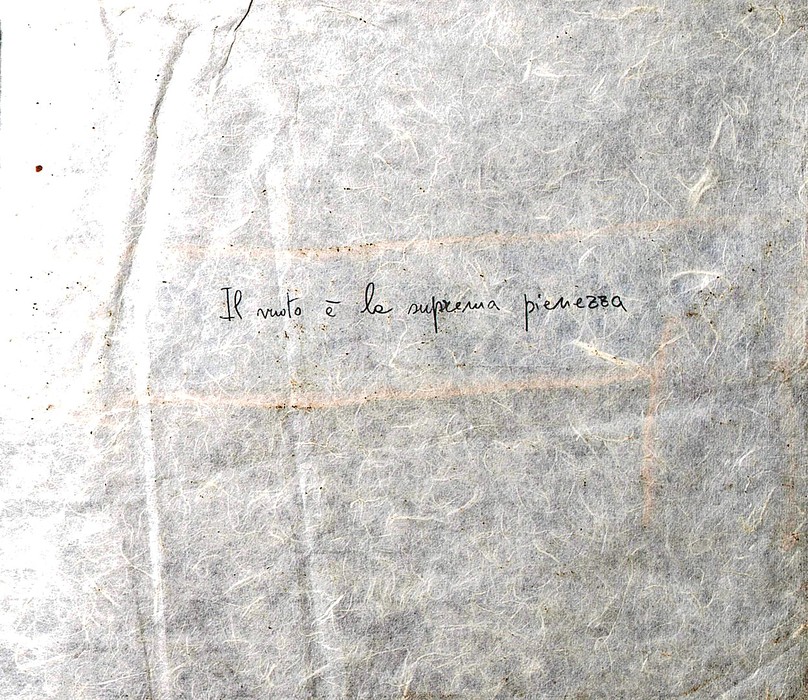 Il vuoto è la suprema pienezza